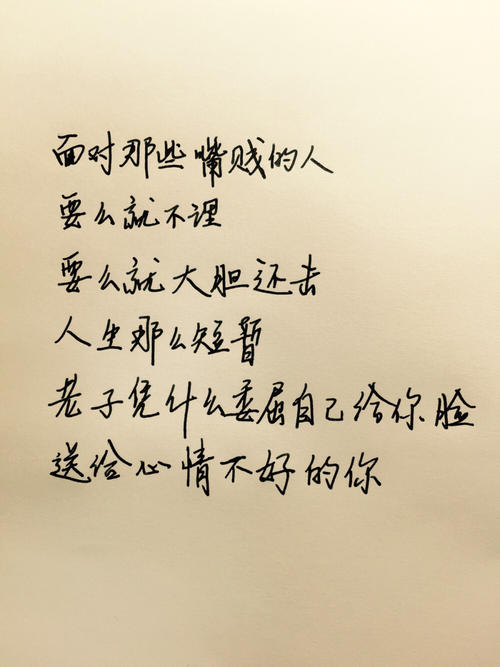 面对那些嘴贱的人
要么就不理
要么就大胆还击
人生那么短暂
老子凭什么委屈自己给你脸
送给心情不好的你